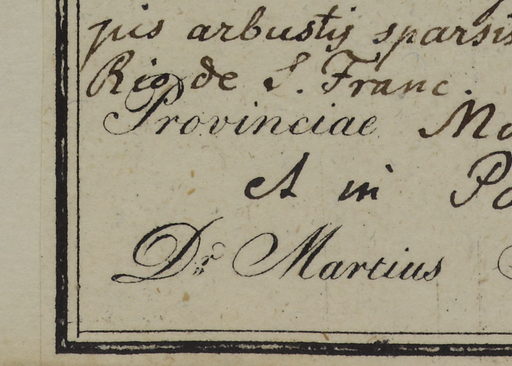 pis arbustis sparsis
Rio de S. Franc.
Provinciae
et in
Dr. Martius